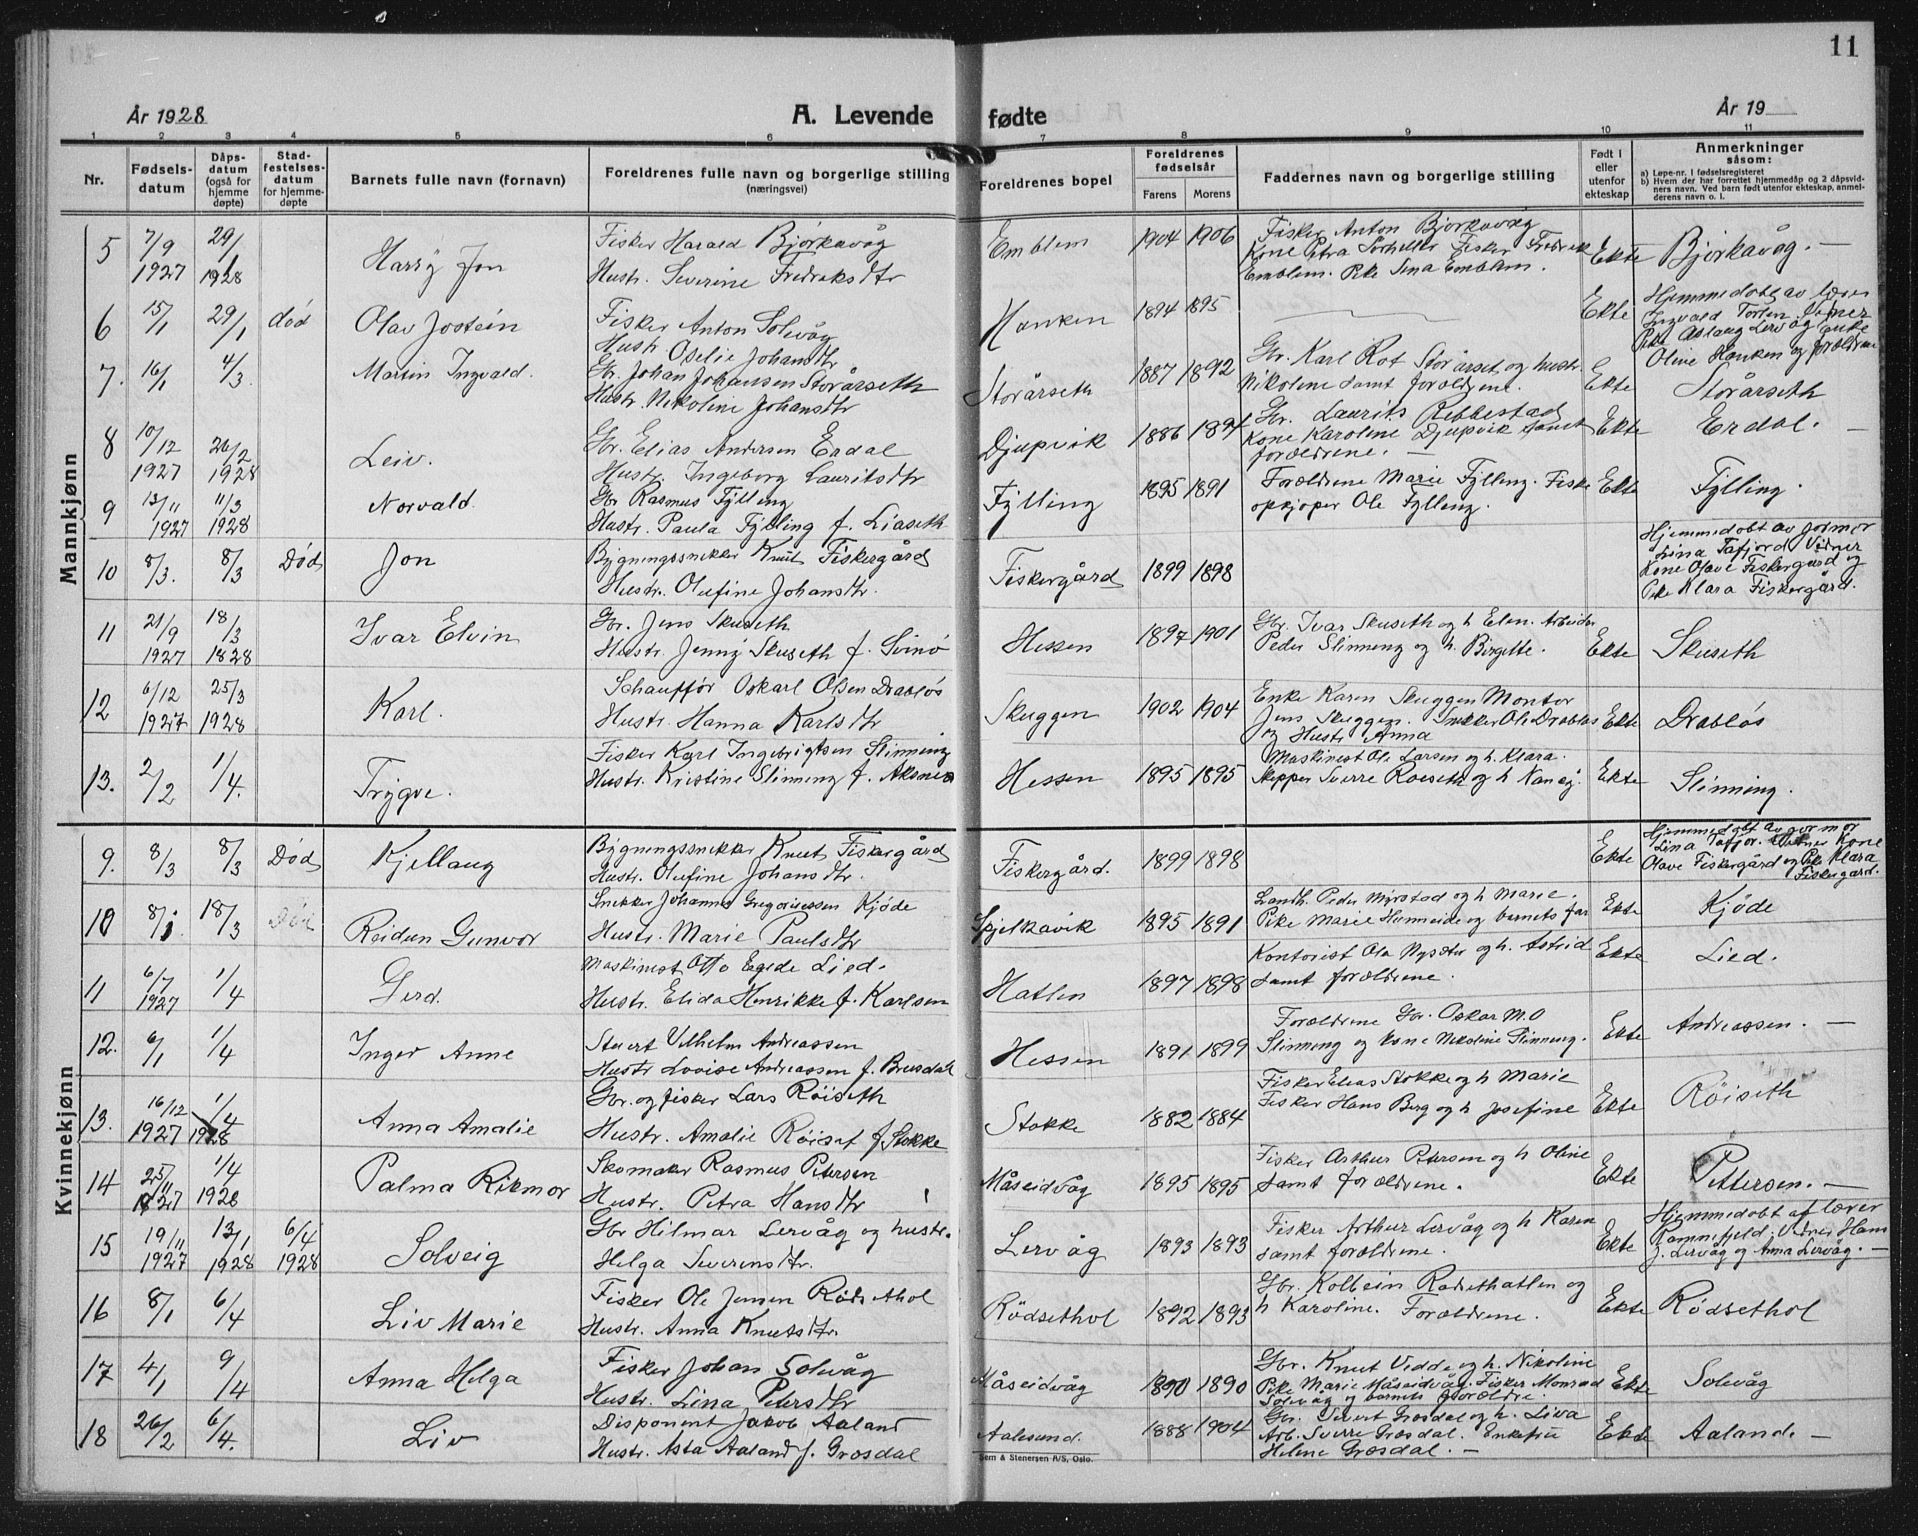 11
År 1928
A. Levende
fødte
År 19
1 2 3 4 5 6 7 8 9 10 11
Nr.
Fødsels-
datum
Dåps-
datum
(også for
hjemme
døpte)
Stad-
festelses-
datum
for hjemme-
døpte
Barnets fulle navn (fornavn)
Foreldrenes fulle navn og borgerlige stilling
(næringsvei)
Foreldrenes bopel
Foreldrenes
fødselsår
Farens Morens
Faddernes navn og borgerlige stilling
Født i
eller
utenfor
ekteskap
Anmerkninger
såsom:
a) Løpe-nr. i fødselsregisteret
b) Hvem der har forrettet hjemmedåp og 2 dåpsvid-
ners navn. Ved barn født utenfor ekteskap, anmel-
derens navn o. l.
Mannkjønn
5 7/9 1927 29/1 1928 Harry Jon
Fisker Harald Bjørkavåg
Hustr. Severine Fredriksdtr
Emblem 1904 1906
Fisker Anton Bjørkavåg
Kone Petra Sørheller Fisker Fredrik
Emblem. Pike Sina Emblem.
Ekte Bjørkavåg. —
6 15/1 29/1 død Olav Jostein
Fisker Anton Solvåg
Hustr. Ofelie Johansdtr
Hanken 1894 1895
Ekte
Hjemmedøbt av lærer
Ingvald Torlen Vidner
Pike Aslaug Lervåg enke
Oline Hanken og forældrene
7. 16/1 4/3 Martin Ingvald.
Gbr. Johan Johansen Storårseth
Hustr. Nikoline Johansdtr
Storårseth 1887 1892
Gbr. Karl Rot Storårset og hustr.
Nikoline samt forældrene.
Ekte Storårseth
8 10/12 1927 26/2 1928 Leiv.
Gbr. Elias Andersen Erdal
Hustr. Ingeborg Lauritsdtr
Djupvik 1886 1894
Gbr. Laurits Ribbestad
Kone Karoline Djupvik samt
forældrene. —
Ekte Erdal. —
9 13/11 1927 11/3 1928 Norvald
Gbr Rasmus Fylling
Hustr. Paula Fylling f. Liaseth
Fylling 1895 1891
Forældrene Marie Fylling. Fiske
opkjøper Ole Fylling.
Ekte Fylling.
10 8/3. 8/3 Død Jon
Bygningssnekker Knut Fiskergård
Hustr. Olufine Johansdtr.
Fiskergård 1899 1898
Hjemmedøbt av jormor
Lina Tafjord Vidner
Kone Olave Fiskergård og
Pike Klara Fiskergård.
11 21/9 1927 18/3 1828 Ivar Elvin
Gbr. Jens Skuseth
Hustr. Jenny Skuseth f. Svinø
Hessen 1897 1901
Gbr. Ivar Skuseth og h Elen. Arbeider
Peder Slinning og h. Birgitte.
Ekte Skuseth
12 6/12 1927 25/3 1928 Karl.
Schauffør Oskarl Olsen Drabløs
Hustr. Hanna Karlsdtr
Skuggen 1902 1904
Enke Karen Skuggen Montør
Jens Skuggen. Snekker Ole Drabløs
og Hustr Anna
Ekte Drabløs
13. 2/2 1/4. Trygve.
Fisker Karl Ingebrigtsen Slinning
Hustr. Kristine Slinning f. Aksnes
Hessen 1895 1895
Maskinest Ole Larsen og h. Klara.
Skipper Sverre Roiseth og h Nancy.
Ekte Slinning.
Kvinnekjønn
9. 8/3 8/3 Død Kjellaug
Bygningssnekker Knut Fiskergård
Hustr. Olufine Johansdtr.
Fiskergård. 1899 1898
Ekte
Hjemmedøbt av jormor
Lina Tafjor. Vidner Kone
Olave Fiskergård og Pike Klara
Fiskergård.
10 8/1. 18/3 Reidun Gunvor
Snekker Johannes Gregoriussen Kjøde
Hustr. Marie Paulsdtr
Spjelkavik 1895 1891
Landh. Peder Myrstad og h Marie.
Pike Marie Humeide og barnets far
Ekte Kjøde
11 6/7 1927 1/4 Gerd.
Maskinest Otto Egede Lied.
Hustr. Elida Henrikke f. Karlsen
Hatlen 1897 1898
Kontorist Ola Nysæter og h. Astrid
samt forældrene.
Ekte Lied.
12. 6/1 1/4 Inger Anne
Stuert Vilhelm Andreassen
Hustr Lovise Andreassen f. Brusdal
Hessen 1891 1899
Forældrene Gbr. Oskar M.O
Slinning og kone Nikoline Slinning.
Ekte Andreassen. —
13. 16/12 1927 1/4 1928 Anna Amalie
Gbr. og fisker Lars Röiseth
Hustr. Amalie Röiset f Stokke
Stokke 1882 1884
Fisker Elias Stokke og h Marie
Fisker Hans Berg og h Josefine
Ekte Röiseth
14 25/11 1927 1/4 1928 Palma Rikmor
Skomaker Rasmus Petersen
Hustr. Petra Hansdtr
Måseidvåg 1895 1895
Fisker Arthur Petersen og h Oline
samt forældrene.
Ekte Pettersen. —
15 19/11 1927 13/1 1928 6/4 1928 Solveig
Gbr Hilmar Lervåg og hustr.
Helga Severinsdtr.
Lervåg 1893 1893
Fisker Arthur Lervåg og h Karen
samt forældrene.
Ekte
Hjemmedøbt af lærer
Rammefjeld. Vidner Hans
J. Lervåg og Anna Lervåg. —
16 8/1 6/4 Liv Marie
Fisker Ole Jensen Rödsethol
Hustr. Anna Knutsdtr.
Rödsethol 1892 1893
Gbr. Kolbein Rødsethatlen og
h Karoline. Forældrene.
Ekte Rödsethol
17 4/1 9/4 Anna Helga
Fisker Johan Solvåg
Hustr. Lina Petersdtr
Måseidvåg 1890 1890
Gbr. Knut Vedde og h. Nikoline
Pike Marie Måseidvåg. Fisker Monrad
Solvåg og barnets forældre.
Ekte Solvåg
18 26/2 6/4. Liv
Disponent Jakob Aaland
Hustr. Asta Aaland f. Grøsdal
Aalesund. 1888 1904
Gbr. Sivert Grøsdal og h. Liva
Arb. Sverre Grøsdal. Enkefru
Helene Grøsdal. —
Ekte Aaland. —
Sem & Stenersen A/S, Oslo.